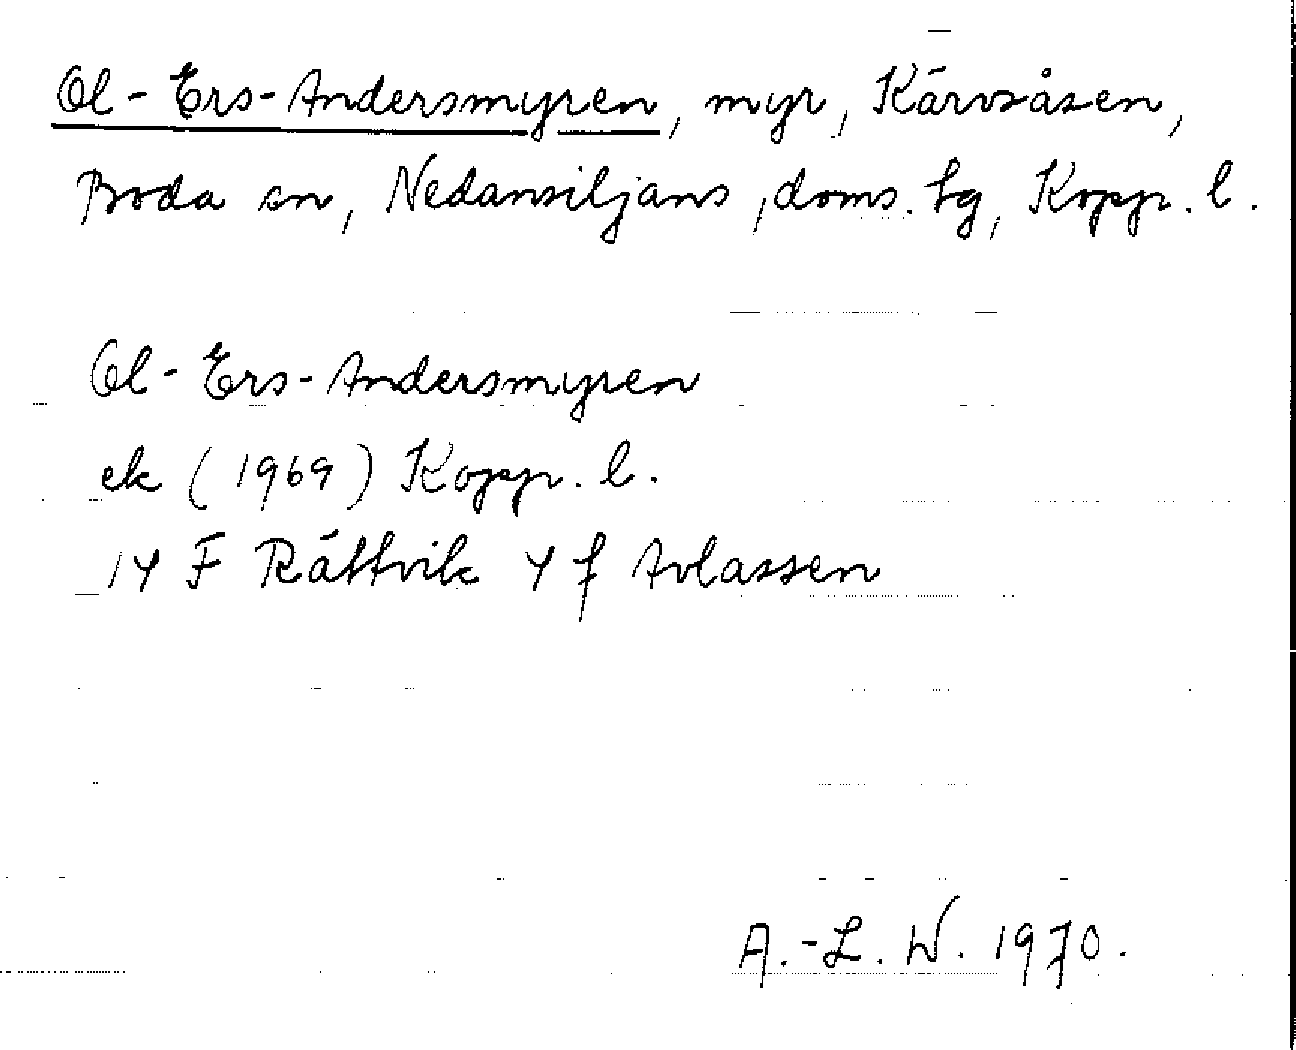 Ol-Ers-Andersmyren, myr, Kärvsåsen,
Boda sn, Nedansiljans, doms.tg, Kopp. l.
Ol-Ers-Andersmyren
ek (1969) Kopp. l.
14 F Rättvik 4 f Avlassen
A.-L. W. 1970.